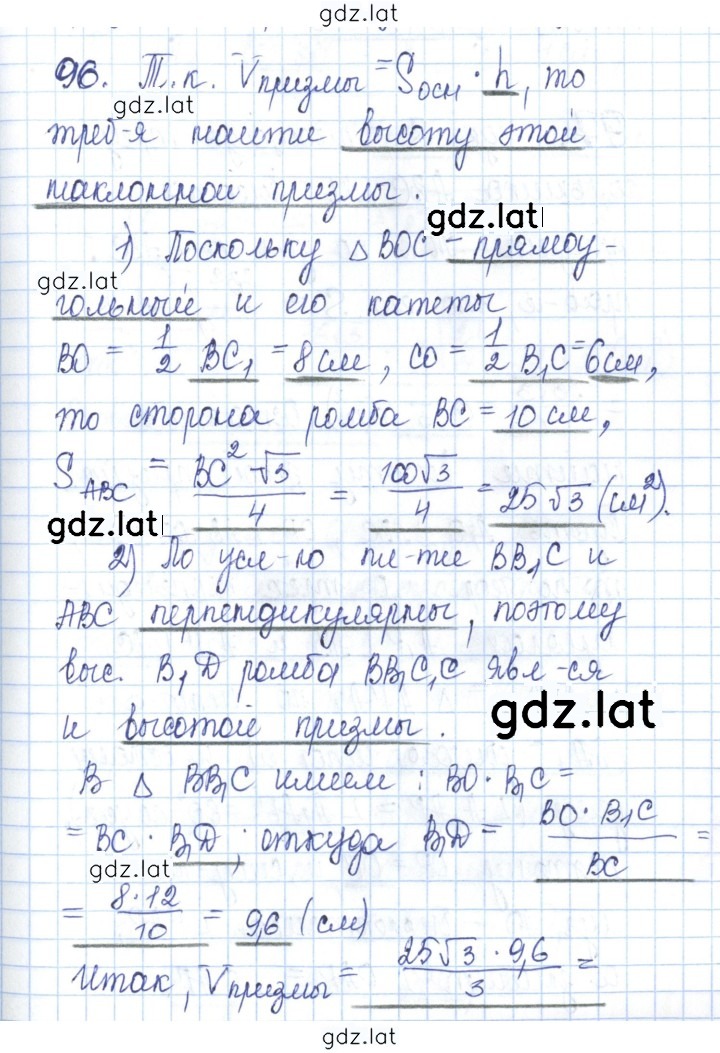 gdz.lat
96. Т.к. Vпризмы = Sосн · h, то
gdz.lat
треб-я найти высоту этой
наклонной призмы.
gdz.lat
1) Поскольку △ BOC – прямоу-
gdz.lat
гольный и его катеты
BO = 1/2 BC₁ = 8 см, CO = 1/2 B₁C = 6 см,
то сторона ромба BC = 10 см,
S_ABC = BC²√3/4 = 100√3/4 = 25√3 (см²).
gdz.lat
2) По усл-ю пл-ти BB₁C и
ABC перпендикулярны, поэтому
выс. B₁D ромба BB₁C₁C явл-ся
и высотой призмы.
gdz.lat
В △ BB₁C имеем: BO · B₁C =
= BC · B₁D, откуда B₁D = BO · B₁C/BC =
gdz.lat
= 8·12/10 = 9,6 (см)
Итак, Vпризмы = 25√3 · 9,6/3 =
gdz.lat